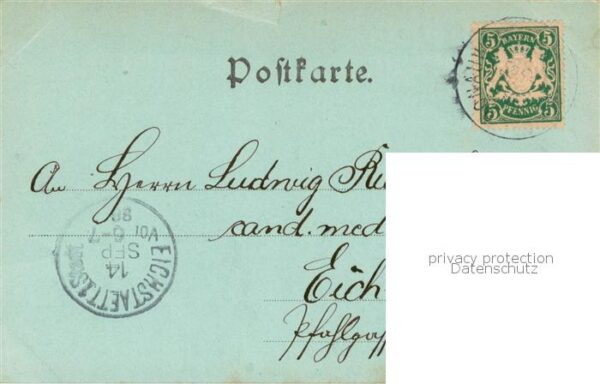 Postkarte.
5 BAYERN 5
5 PFENNIG 5
An Herrn Ludwig
cand. med
Eich
Pfahlgass
EICHSTAETT Stadt
14
SEP
6-7
Vor
98
privacy protection
Datenschutz